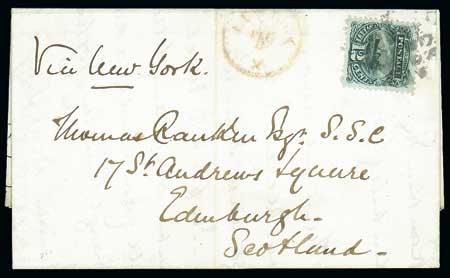 Via New York.
POSTAGE
12
Thomas Rankin Esqr. S.S.C
17 St. Andrews Square
Edinburgh.
Scotland.